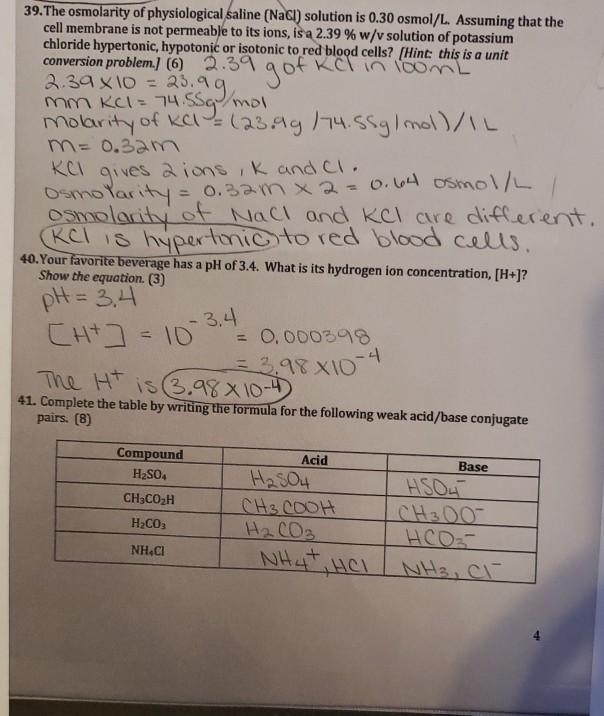 39. The osmolarity of physiological saline (NaCl) solution is 0.30 osmol/L. Assuming that the
cell membrane is not permeable to its ions, is a 2.39 % w/v solution of potassium
chloride hypertonic, hypotonic or isotonic to red blood cells? [Hint: this is a unit
conversion problem.] (6) 2.39 g of KCl in 100mL
2.39 x 10 = 23.9g
mm KCl = 74.55g/mol
molarity of KCl = (23.9g / 74.55g/mol) / 1L
m = 0.32m
KCl gives 2 ions, K and Cl.
Osmolarity = 0.32m x 2 = 0.64 osmol/L
Osmolarity of NaCl and KCl are different.
KCl is hypertonic to red blood cells.
40. Your favorite beverage has a pH of 3.4. What is its hydrogen ion concentration, [H+]?
Show the equation. (3)
pH = 3.4
[H+] = 10^-3.4 = 0.000398
= 3.98 x 10^-4
The H+ is 3.98 x 10-4
41. Complete the table by writing the formula for the following weak acid/base conjugate
pairs. (8)
Compound Acid Base
H₂SO₄ H2SO4 HSO4-
CH₃CO₂H CH3COOH CH3OO-
H₂CO₃ H2CO3 HCO3-
NH₄Cl NH4+, HCl NH3, Cl-
4